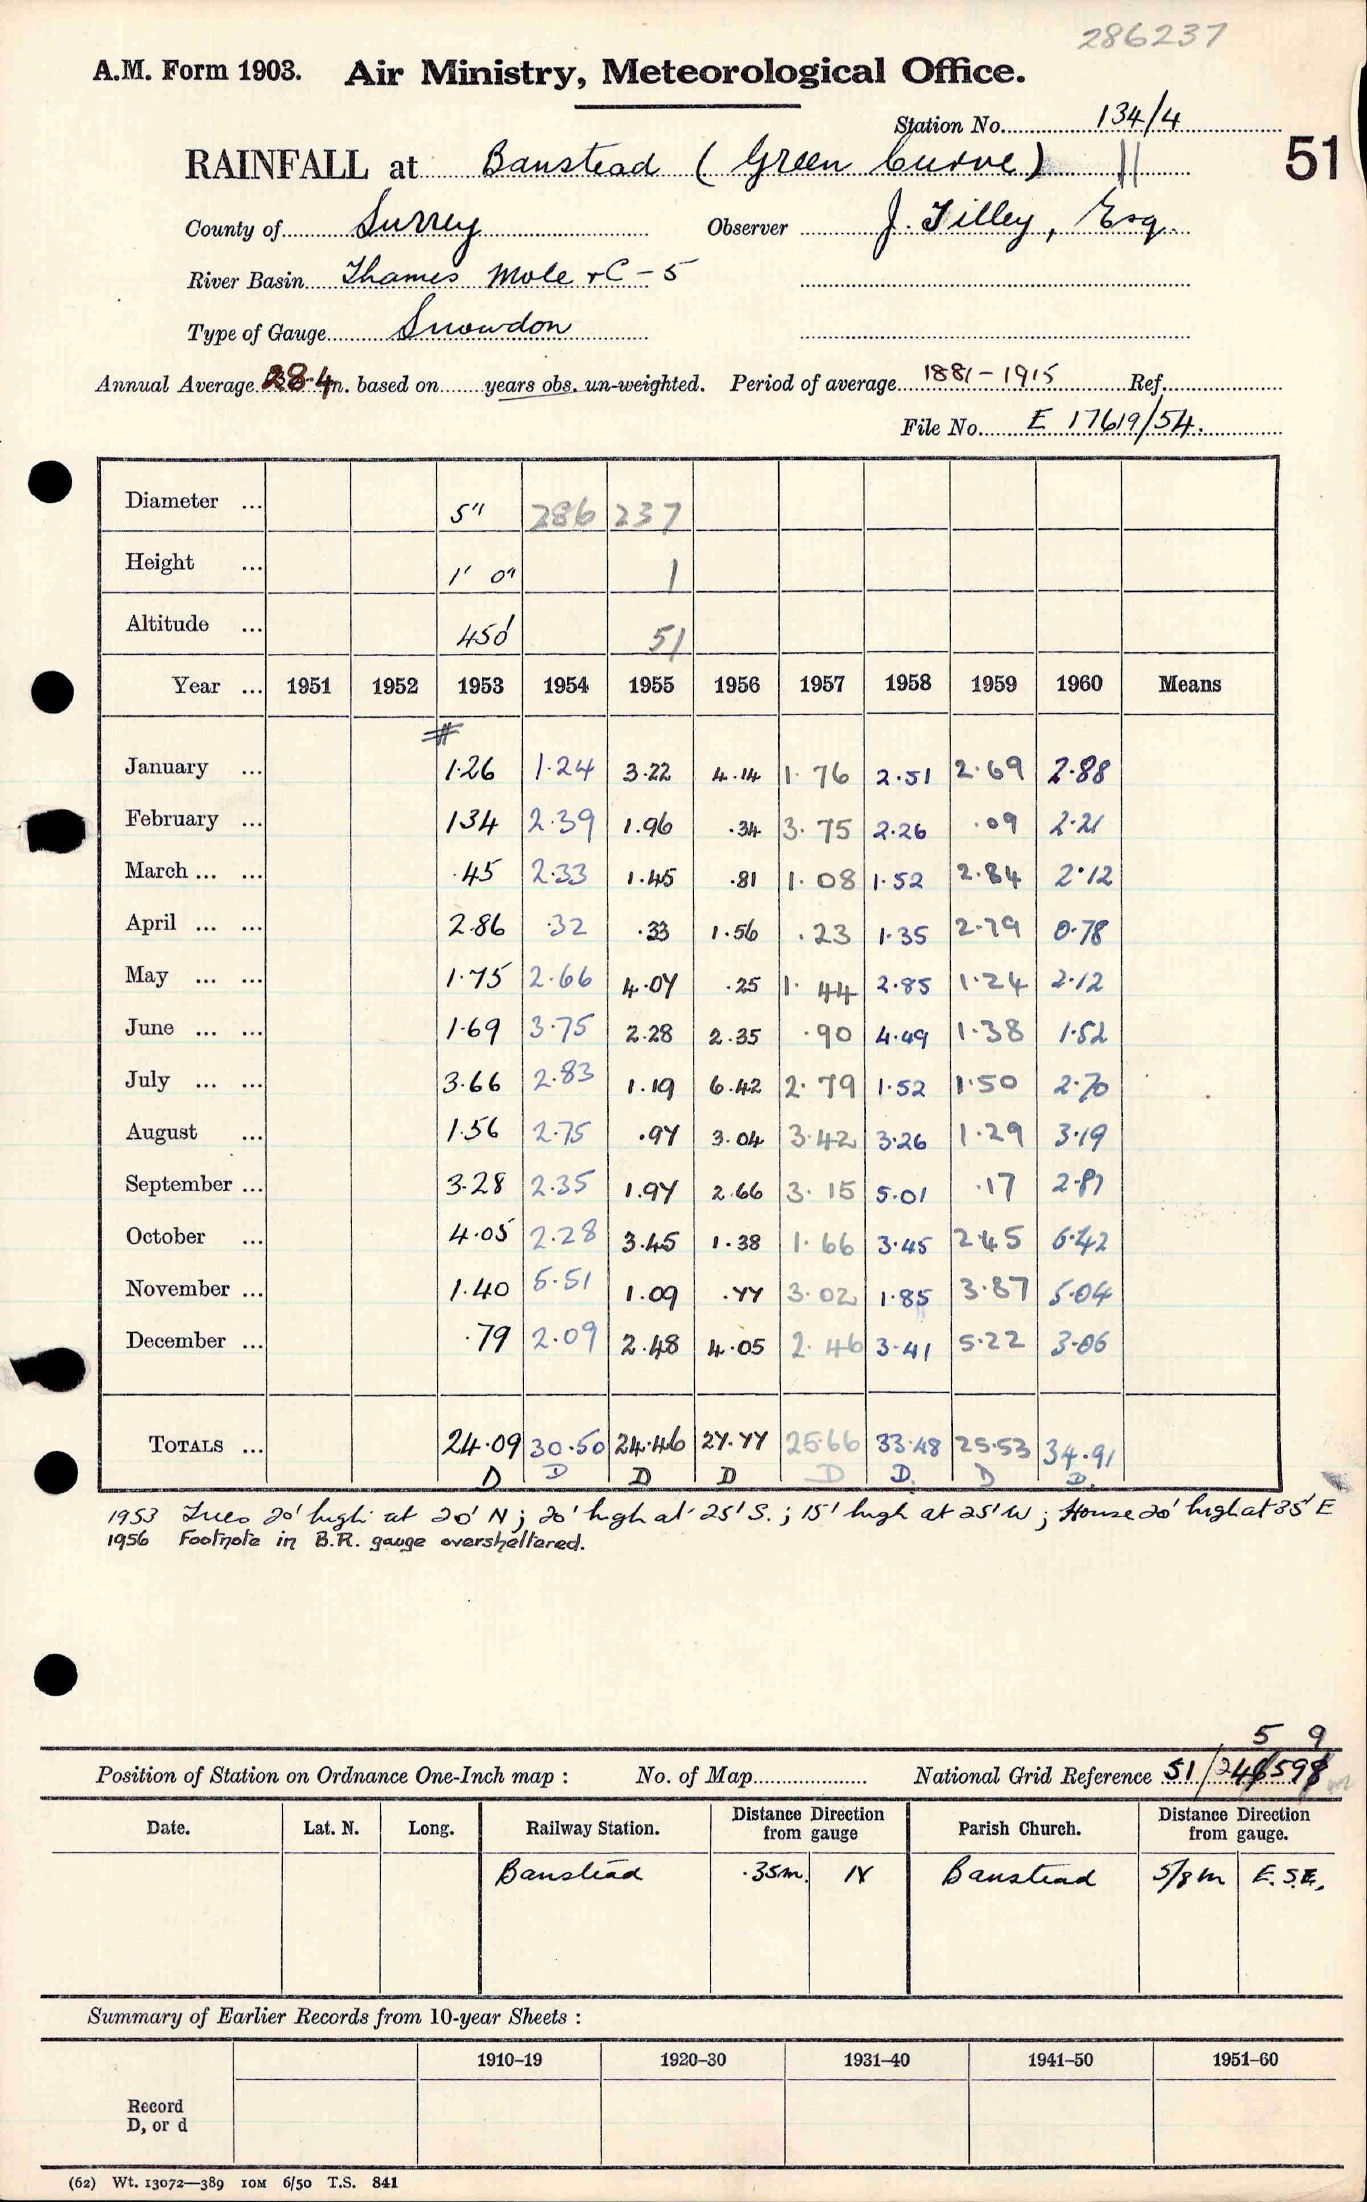 286237
A.M. Form 1903. Air Ministry, Meteorological Office.
Station No. 134/4
RAINFALL at Banstead (Green Curve) 11 51
County of Surrey Observer J. Tilley, Esq.
River Basin Thames Mole + C - 5
Type of Gauge Snowdon
Annual Average 28.4 in. based on years obs. un-weighted. Period of average 1881-1915 Ref.
File No. E 17619/54.
Diameter ... 5" 286 237
Height ... 1' 0" 1
Altitude ... 450' 51
Year ... 1951 1952 1953 1954 1955 1956 1957 1958 1959 1960 Means
#
January ... 1.26 1.24 3.22 4.14 1.76 2.51 2.69 2.88
February ... 134 2.39 1.96 .34 3.75 2.26 .09 2.21
March ... ... .45 2.33 1.45 .81 1.08 1.52 2.84 2.12
April ... ... 2.86 .32 .33 1.56 .23 1.35 2.79 0.78
May ... ... 1.75 2.66 4.07 .25 1.44 2.85 1.24 2.12
June ... ... 1.69 3.75 2.28 2.35 .90 4.49 1.38 1.52
July ... ... 3.66 2.83 1.19 6.42 2.79 1.52 1.50 2.70
August ... 1.56 2.75 .97 3.04 3.42 3.26 1.29 3.19
September ... 3.28 2.35 1.97 2.66 3.15 5.01 .17 2.87
October ... 4.05 2.28 3.45 1.38 1.66 3.45 2.45 6.42
November ... 1.40 5.51 1.09 .77 3.02 1.85 3.87 5.04
December ... .79 2.09 2.48 4.05 2.46 3.41 5.22 3.06
TOTALS ... 24.09 30.50 24.46 27.77 25.66 33.48 25.53 34.91
D D D D D D. D D.
1953 Trees 20' high at 20' N; 20' high at 25' S.; 15' high at 25' W; House 20' high at 35' E
1956 Footnote in B.R. gauge oversheltered.
5 9
Position of Station on Ordnance One-Inch map : No. of Map National Grid Reference 51/246598
Date. Lat. N. Long. Railway Station. Distance Direction from gauge Parish Church. Distance Direction from gauge.
Banstead .35m. N Banstead 5/8m E.S.E.
Summary of Earlier Records from 10-year Sheets :
1910–19 1920–30 1931–40 1941–50 1951–60
Record
D, or d
(62) Wt. 13072—389 10M 6/50 T.S. 841